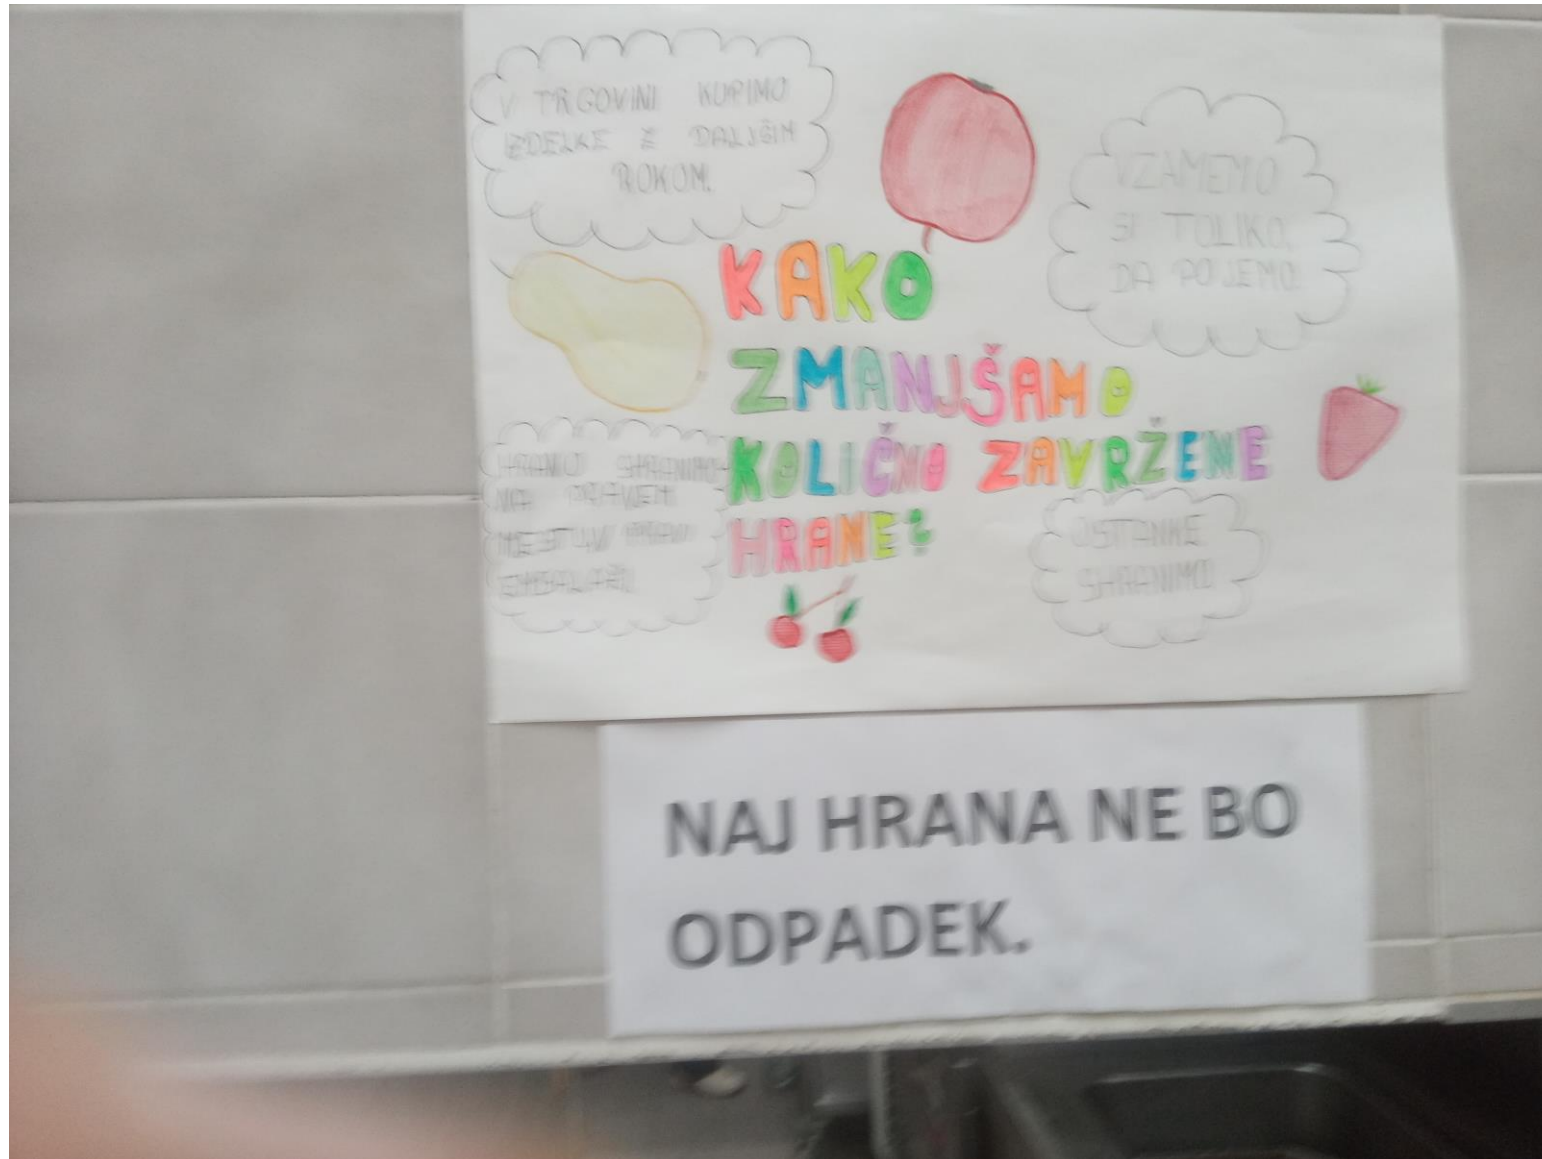 V TRGOVINI KUPIMO
IZDELKE Z DALJŠIM
ROKOM.
VZAMEMO
SI TOLIKO,
DA POJEMO.
KAKO
ZMANJŠAMO
KOLIČNO ZAVRŽENE
HRANE?
HRANO SHRANIMO
NA PRAVEM
MESTU V PRAVI
EMBALAŽI.
OSTANKE
SHRANIMO.
NAJ HRANA NE BO
ODPADEK.